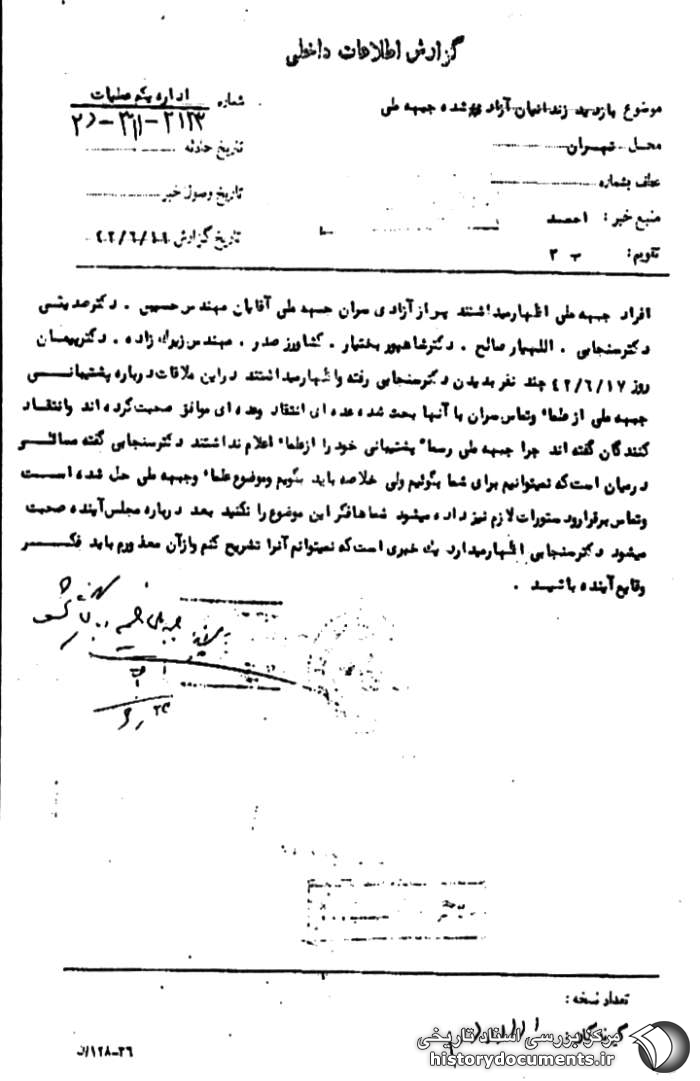 گزارش اطلاعات داخلی
موضوع بازدید زندانیان آزاد شده جبهه ملی
شماره اداره یکم عملیات
محل تهران
تاریخ حادثه
عطف بشماره
تاریخ وصول خبر
منبع خبر : احمد
تاریخ گزارش
تقویم : ب ۳
افراد جبهه ملی اظهارمیداشتند پس از آزادی سران جبهه ملی آقایان مهندس حسیبی . دکترصدیقی
دکترسنجابی . اللهیار صالح . دکترشاهپور بختیار . کشاورز صدر . مهندس زیرک زاده . دکتر پیمان
روز ۴۲/۶/۱۷ چند نفر بدیدن دکترسنجابی رفته واظهارمیداشتند دراین ملاقات درباره پشتیبانی
جبهه ملی از علماء وتماس سران با آنها بحث شده عده ای انتقاد وعده ای موافق صحبت کرده اند وانتقاد
کنندگان گفته اند چرا جبهه ملی رسماً پشتیبانی خود را ازعلماء اعلام نداشتند دکترسنجابی گفته مسائلی
درمیان است که نمیتوانیم برای شما بگوئیم ولی خلاصه باید بگویم وموضوع علماء وجبهه ملی حل شده است
وتماس برقرارودستورات لازم نیز داده میشود شماهافکر این موضوع را نکنید بعد درباره مجلس آینده صحبت
میشود دکترسنجابی اظهارمیدارد یک خبری است که نمیتوانم آنرا تشریح کنم وازآن معذورم باید فکر
وقایع آینده باشید .
تعداد نسخه :
گیرندگان
۳۶-۱۲۸/ن
مرکز بررسی اسناد تاریخی
historydocuments.ir